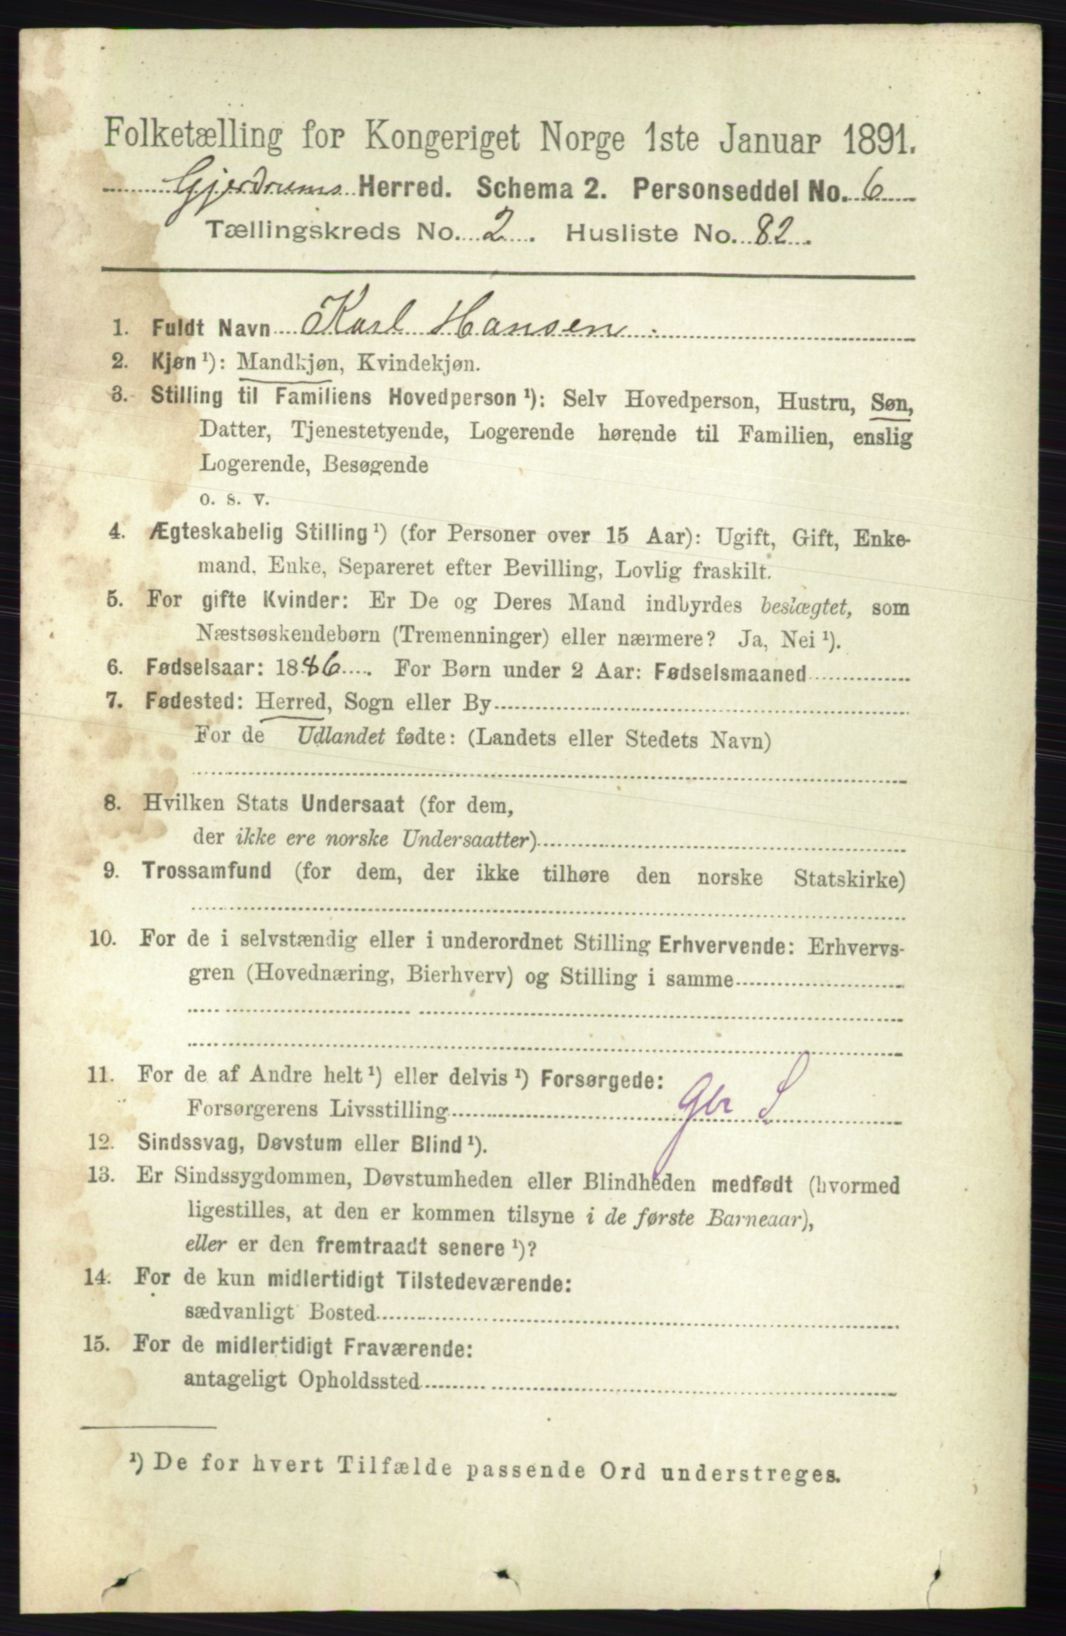 Folketælling for Kongeriget Norge 1ste Januar 1891.
Gjerdrums Herred. Schema 2. Personseddel No. 6
Tællingskreds No. 2. Husliste No. 82.
1. Fuldt Navn Karl Hansen.
2. Kjøn ¹): Mandkjøn, Kvindekjøn.
3. Stilling til Familiens Hovedperson ¹): Selv Hovedperson, Hustru, Søn,
Datter, Tjenestetyende, Logerende hørende til Familien, enslig
Logerende, Besøgende
o. s. v.
4. Ægteskabelig Stilling ¹) (for Personer over 15 Aar): Ugift, Gift, Enke-
mand, Enke, Separeret efter Bevilling, Lovlig fraskilt.
5. For gifte Kvinder: Er De og Deres Mand indbyrdes beslægtet, som
Næstsøskendebørn (Tremenninger) eller nærmere? Ja, Nei ¹).
6. Fødselsaar: 1886. For Børn under 2 Aar: Fødselsmaaned
7. Fødested: Herred, Sogn eller By
For de Udlandet fødte: (Landets eller Stedets Navn)
8. Hvilken Stats Undersaat (for dem,
der ikke ere norske Undersaatter)
9. Trossamfund (for dem, der ikke tilhøre den norske Statskirke)
10. For de i selvstændig eller i underordnet Stilling Erhvervende: Erhvervs-
gren (Hovednæring, Bierhverv) og Stilling i samme
11. For de af Andre helt ¹) eller delvis ¹) Forsørgede:
Forsørgerens Livsstilling
12. Sindssvag, Døvstum eller Blind ¹).
13. Er Sindssygdommen, Døvstumheden eller Blindheden medfødt (hvormed
ligestilles, at den er kommen tilsyne i de første Barneaar),
eller er den fremtraadt senere ¹)?
14. For de kun midlertidigt Tilstedeværende:
sædvanligt Bosted
15. For de midlertidigt Fraværende:
antageligt Opholdssted
¹) De for hvert Tilfælde passende Ord understreges.